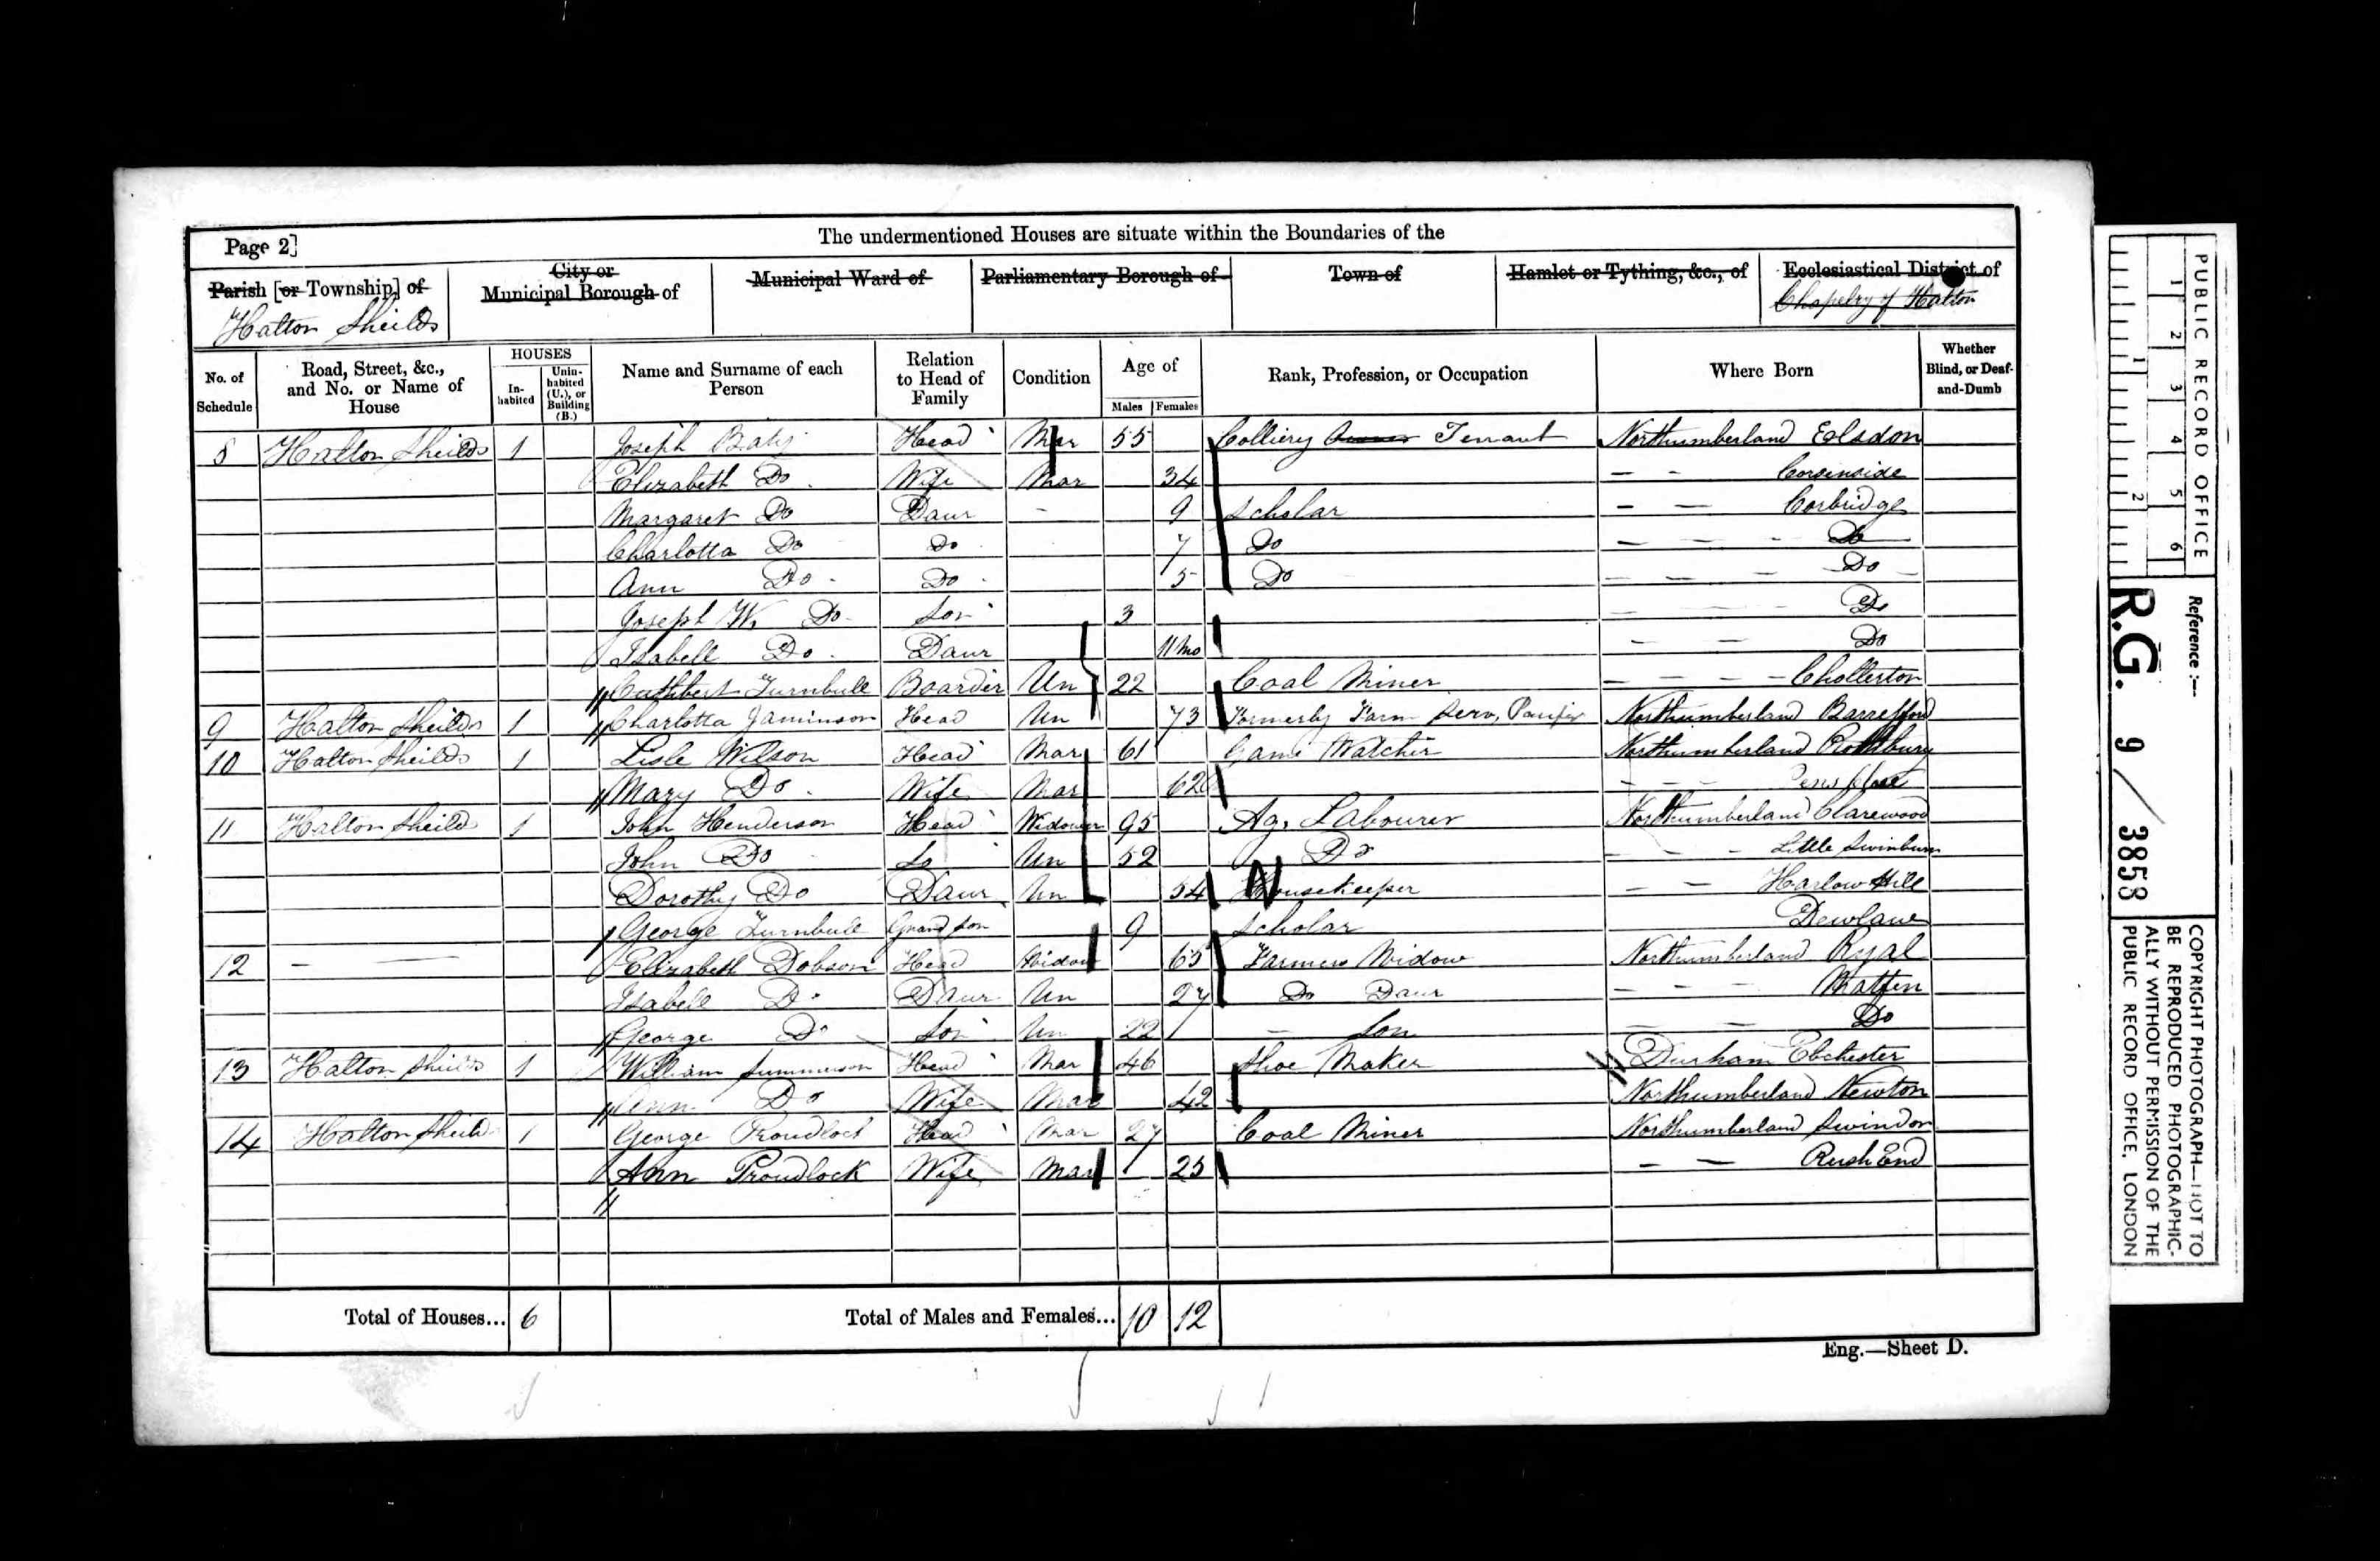 Page 2]
The undermentioned Houses are situate within the Boundaries of the
Parish [or Township] of
Halton Sheilds
City or Municipal Borough of
Municipal Ward of
Parliamentary Borough of
Town of
Hamlet or Tything, &c., of
Ecclesiastical District of
Chapelry of Halton
No. of Schedule
Road, Street, &c., and No. or Name of House
HOUSES
In-habited
Unin-habited (U.), or Building (B.)
Name and Surname of each Person
Relation to Head of Family
Condition
Age of
Males
Females
Rank, Profession, or Occupation
Where Born
Whether Blind, or Deaf-and-Dumb
8 Halton Sheilds 1 Joseph Baty Head Mar 55 Colliery Tenant Northumberland Elsdon
Elizabeth Do Wife Mar 34 - - Corsenside
Margaret Do Daur - 9 Scholar - - Corbridge
Charlotta Do Do 7 Do - - - Do
Ann Do Do 5 Do - - - Do
Joseph W. Do Son 3 - - - Do
Isabell Do Daur 11 mo - - Do
Cuthbert Turnbull Boarder Un 22 Coal Miner - - - Chollerton
9 Halton Sheilds 1 Charlotta Jaminson Head Un 73 Formerly Farm Serv, Northumberland Barresford
10 Halton Sheilds 1 Lisle Wilson Head Mar 61 Game Watcher Northumberland Rothbury
Mary Do Wife Mar 62 - - -
11 Halton Sheilds 1 John Henderson Head Widower 95 Ag. Labourer Northumberland Clarewood
John Do So Un 52 Do - - - Little Swinburn
Dorothy Do Daur Un 54 Housekeeper - - Harlow Hill
George Turnbull Grand Son 9 Scholar Dewlaw
12 - - Elizabeth Dobson Head Widow 65 Farmers Widow Northumberland Ryal
Isabell Do Daur Un 27 Do Daur - - - Matfen
George Do Son Un 22 - Son - - Do
13 Halton Sheilds 1 William Summerson Head Mar 46 Shoe Maker Durham Ebchester
Ann Do Wife Mar 42 Northumberland Newton
14 Halton Sheilds 1 George Proudlock Head Mar 27 Coal Miner Northumberland Swindon
Ann Proudlock Wife Mar 25 - - Rush End
Total of Houses... 6
Total of Males and Females... 10 12
Eng.—Sheet D.
PUBLIC RECORD OFFICE
1 2 3 4 5 6
1 2
Reference :—
R.G. 9 / 3853
COPYRIGHT PHOTOGRAPH—NOT TO
BE REPRODUCED PHOTOGRAPHIC-
ALLY WITHOUT PERMISSION OF THE
PUBLIC RECORD OFFICE, LONDON